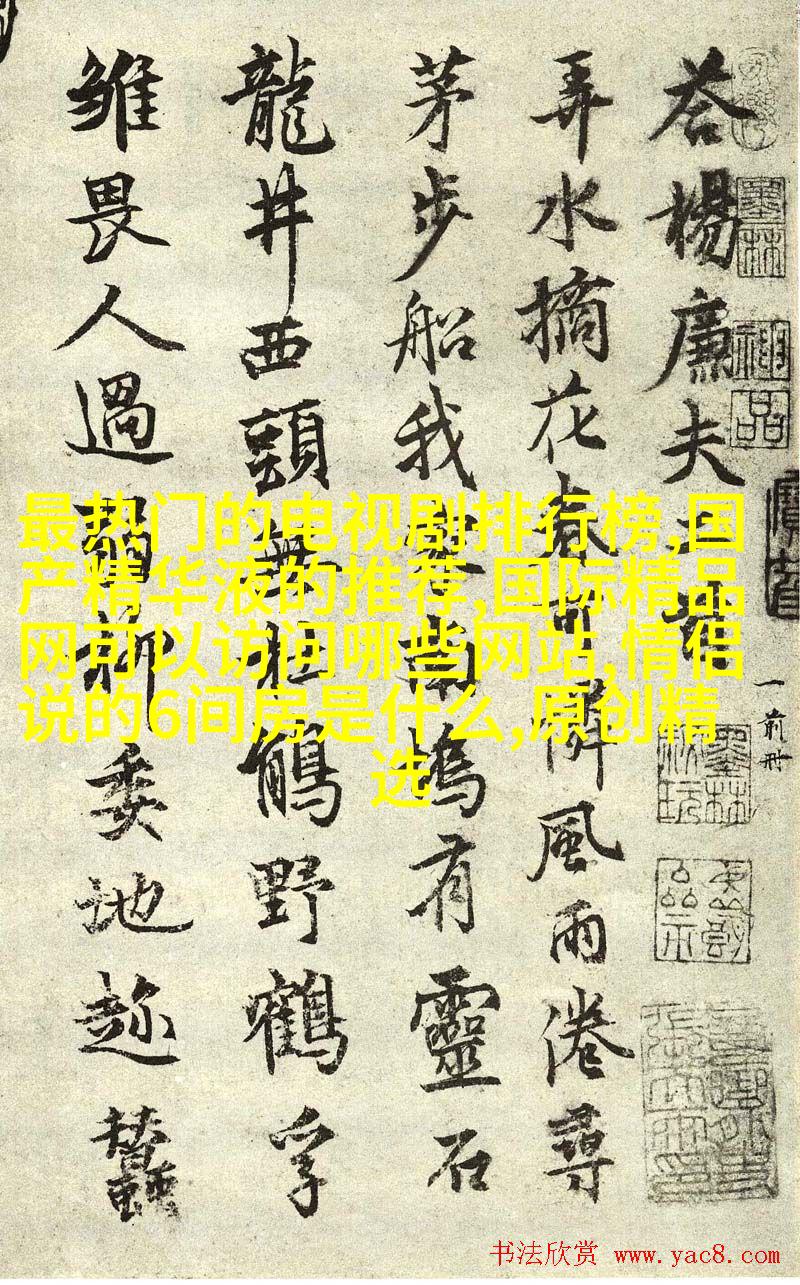 荅楊廉夫
一前
弄水摘花春可憐風雨港尋
茅步船我家南塢有靈石
龍井西頭無杜鵑野鶴孚
雛畏人過柳委地趂蠶
最热门的电视剧排行榜,国
产精华液的推荐,国际精品
网可以访问哪些网站,情侣
说的6间房是什么,原创精
选
书法欣赏 www.yac8.com